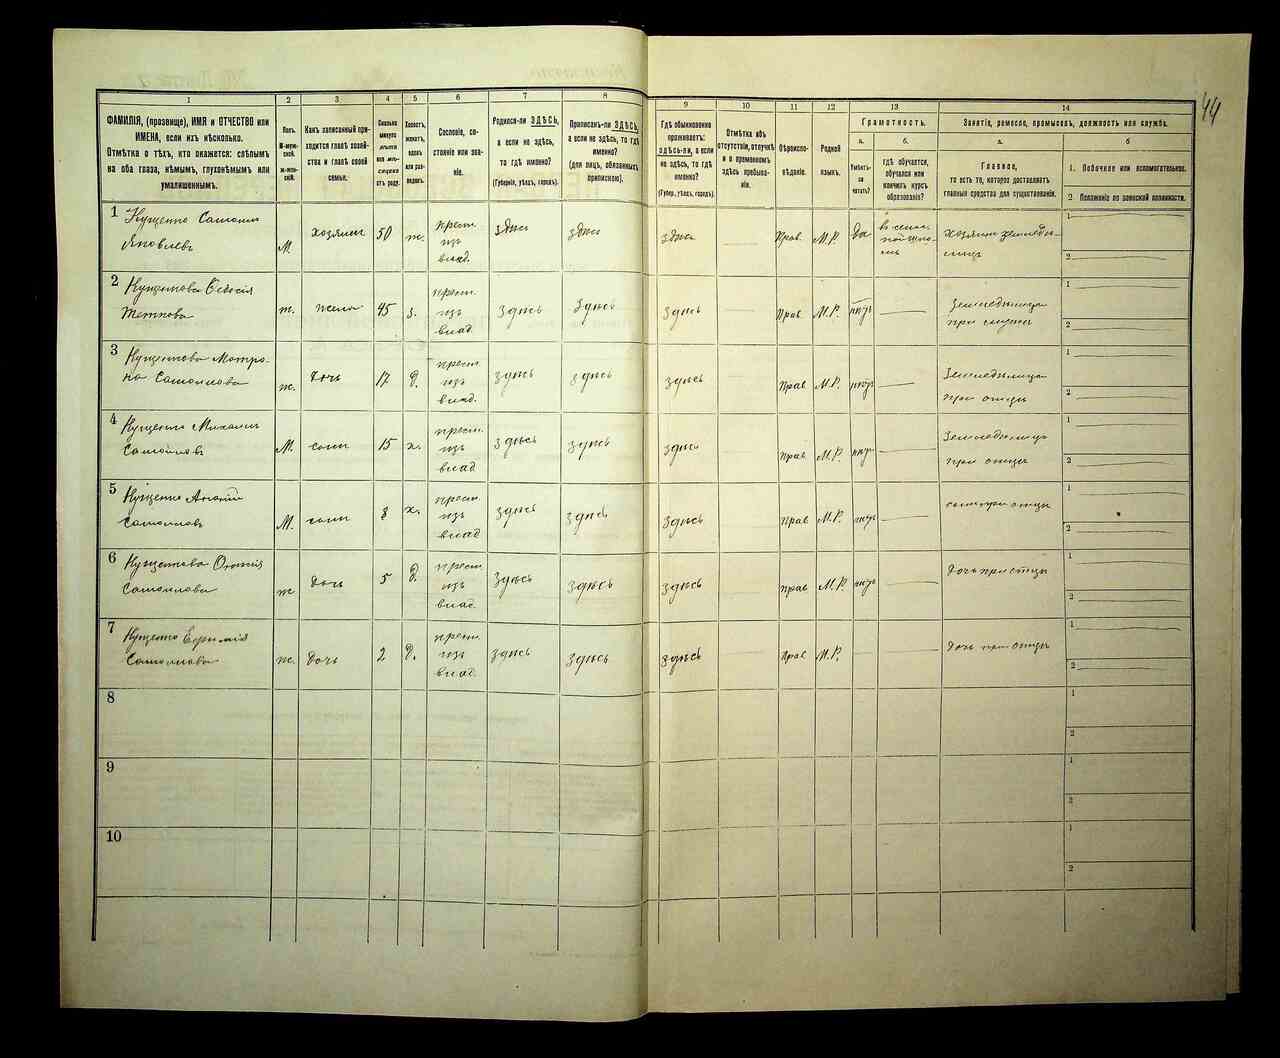 44
1
2
3
4
5
6
7
8
9
10
11
12
13
14
ФАМИЛІЯ, (прозвище), ИМЯ и ОТЧЕСТВО или
ИМЕНА, если ихъ нѣсколько.
Отмѣтка о тѣхъ, кто окажется: слѣпымъ
на оба глаза, нѣмымъ, глухонѣмымъ или
умалишеннымъ.
Полъ.
М-муж-
ской.
Ж-жен-
скій.
Какъ записанный при-
ходится главѣ хозяй-
ства и главѣ своей
семьи.
Сколько
минуло
лѣтъ
или мѣ-
сяцевъ
отъ роду.
Холостъ,
женатъ,
вдовъ
или раз-
веденъ.
Сословіе, со-
стояніе или зва-
ніе.
Родился-ли ЗДѢСЬ,
а если не здѣсь,
то гдѣ именно?
(Губернія, уѣздъ, городъ).
Приписанъ-ли ЗДѢСЬ,
а если не здѣсь, то гдѣ
именно?
(для лицъ, обязанныхъ
припискою).
Гдѣ обыкновенно
проживаетъ:
здѣсь-ли, а если
не здѣсь, то гдѣ
именно?
(Губер., уѣздъ, городъ).
Отмѣтка объ
отсутствіи, отлучкѣ
и о временномъ
здѣсь пребыва-
ніи.
Вѣроиспо-
вѣданіе.
Родной
языкъ.
Грамотность.
а.
Умѣетъ-
ли
читать?
б.
гдѣ обучается,
обучался или
кончилъ курсъ
образованія?
Занятіе, ремесло, промыселъ, должность или служба.
а.
Главное,
то есть то, которое доставляетъ
главныя средства для существованія.
б
1. Побочное или вспомогательное.
2 Положеніе по воинской повинности.
1 Кущенко Самоилъ
Яковлевъ М. хозяинъ 50 ж. крест. изъ влад. здѣсь здѣсь здѣсь Прав. М.Р. да хозяинъ земледѣ-
лецъ
1
2
2 Кущенкова Ѳедосія
ж. жена 45 з. крест. изъ влад. здѣсь здѣсь здѣсь Прав М.Р.
1
2
3 Кущенкова Матро-
на Самоилова ж. дочь 17 д. крест. изъ влад. здѣсь здѣсь здѣсь Прав М.Р. при отцѣ
1
2
4 Кущенко Михаилъ
Самоиловъ М. сынъ 15 х. крест. изъ влад здѣсь здѣсь здѣсь Прав М.Р. Земледѣлецъ
при отцѣ
1
2
5 Кущенко
Самоиловъ М. сынъ 8 х. крест. изъ влад здѣсь здѣсь здѣсь Прав М.Р. сынъ при отцѣ
1
2
6 Кущенкова
Самоилова ж дочь 5 д. крест изъ влад. здѣсь здѣсь здѣсь прав М.Р. дочь при отцѣ
1
2
7 Кущенко
Самоилова ж. дочь 2 д. крест. изъ влад. здѣсь здѣсь здѣсь Прав М.Р. дочь при отцѣ
1
2
8
1
2
9
1
2
10
1
2